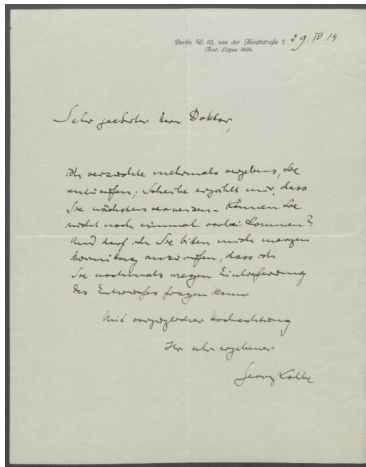 Berlin W. 10, von der Heidtstraße 7 29 IV 14
Amt: Lützow
Sehr geehrter Herr Doktor,
ich versuchte mehrmals vergebens, Sie
anzurufen; Scheibe erzählt mir, dass
Sie nächstens verreisen. Können Sie
nicht noch einmal vorbei kommen?
Und darf ich Sie bitten mich morgen
anzurufen, dass ich
Sie nochmals wegen Einlieferung
des Entwurfes fragen kann
Mit vorzüglicher Hochachtung
Ihr sehr ergebener
Georg Kolbe